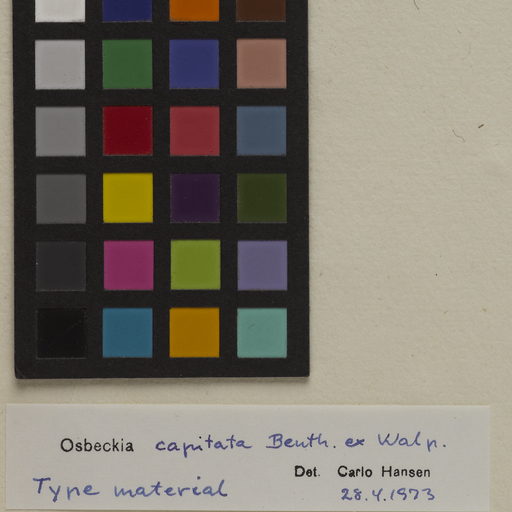 Osbeckia capitata Benth. ex Walp.
Det. Carlo Hansen
Type material 28.4.1973